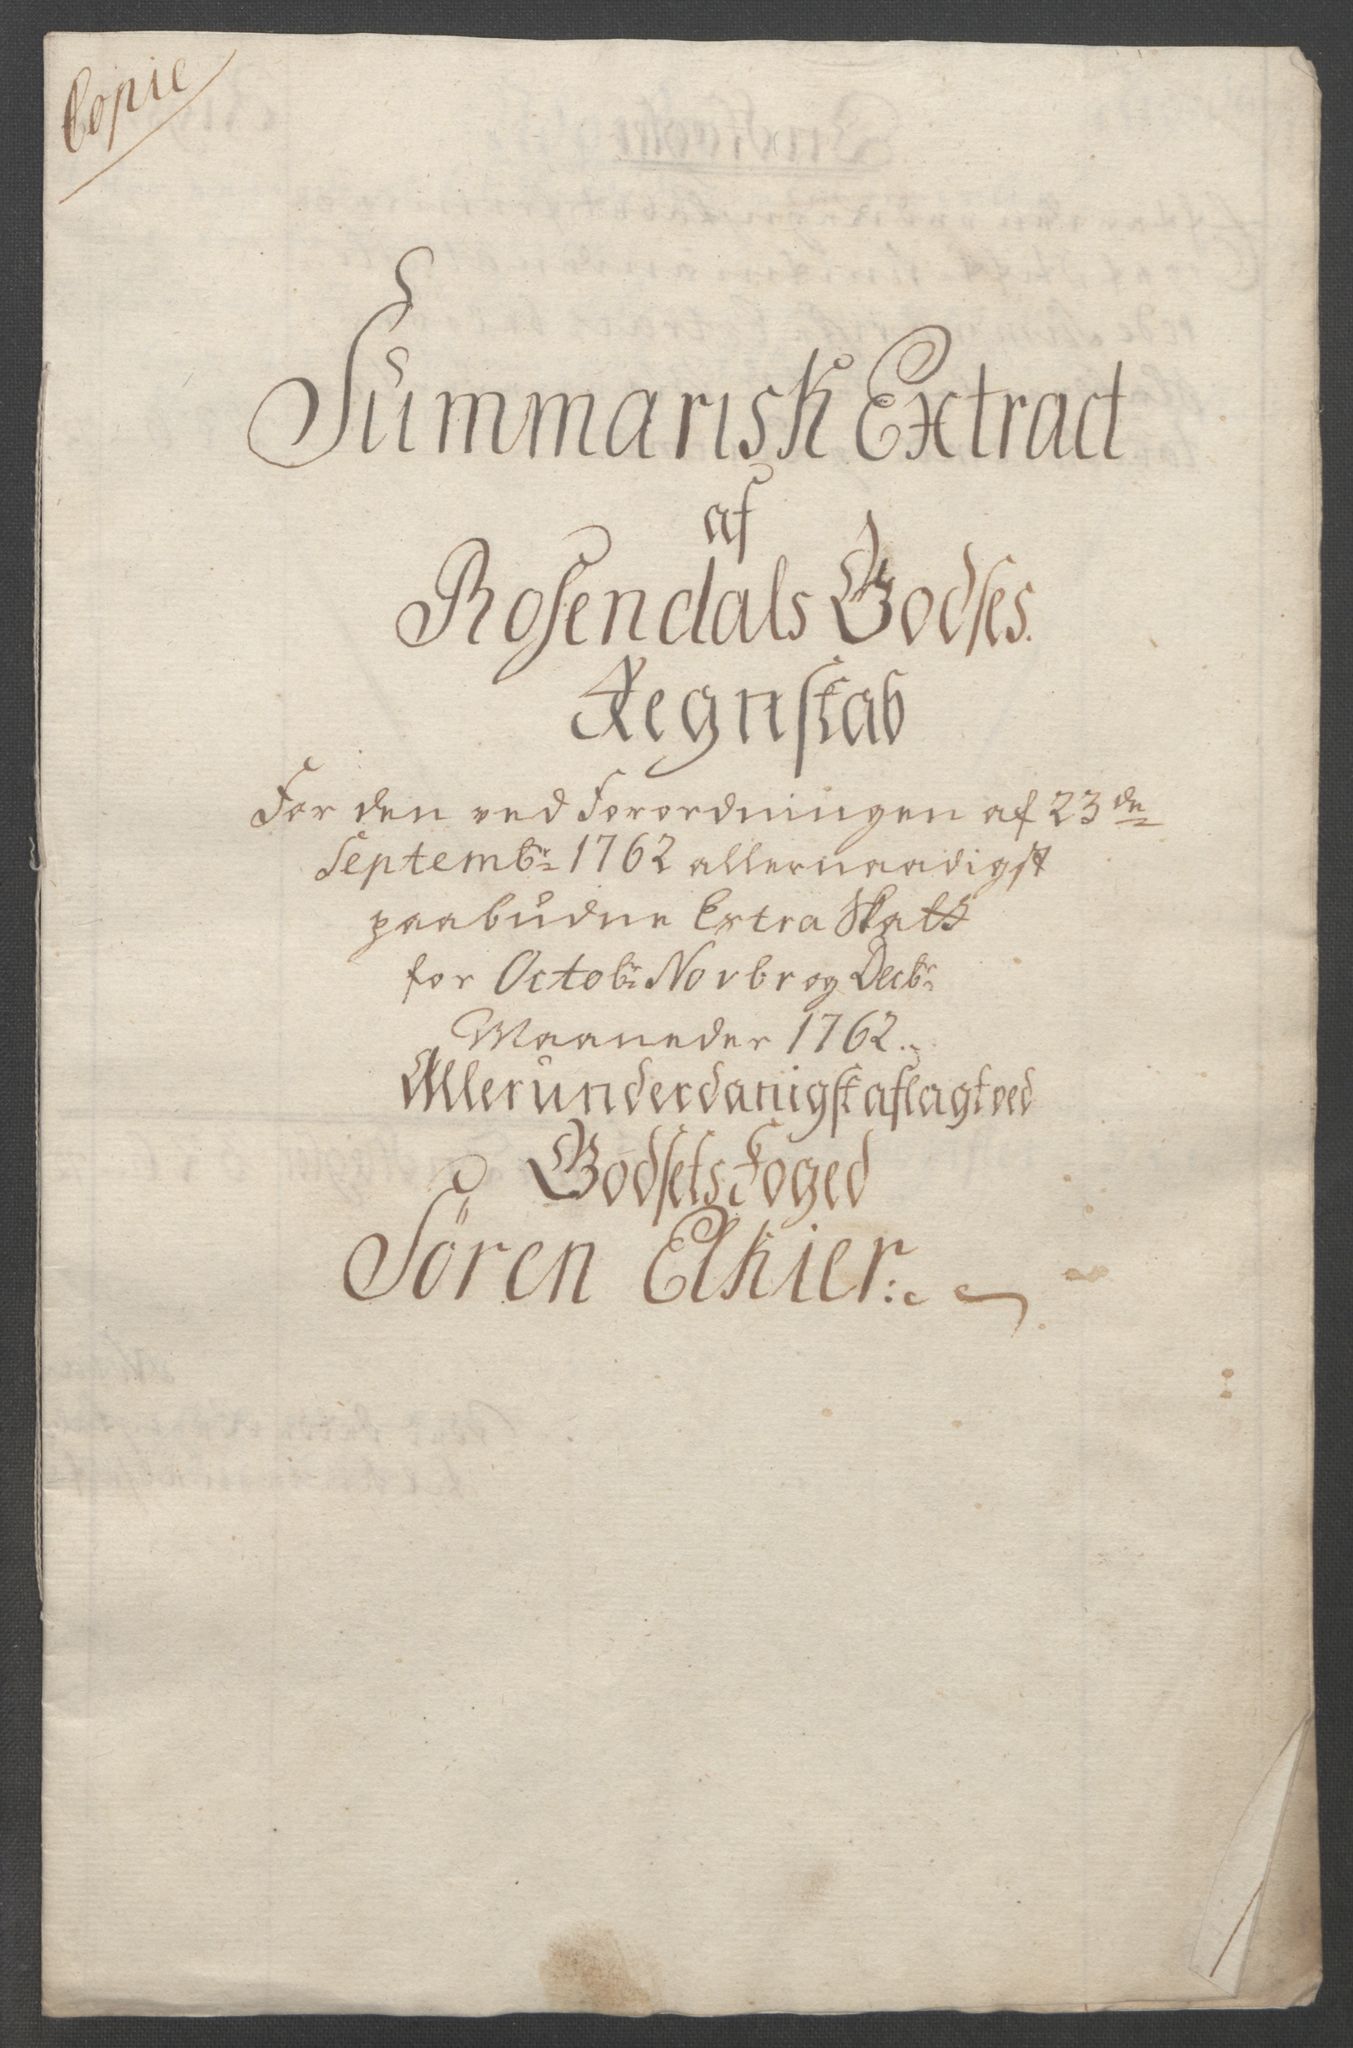 Copie
Summarisk Extract
af
Rosendals Godses
Regnskab
For den ved Forordningen af 23de
Septembr 1762 allernaadigst
paabudne Extra Skatt
for Octobr Novbr og Decbr
Maaneder 1762.
Allerunderdanigst aflagt ved
Godsets Foged
Sören Elkier